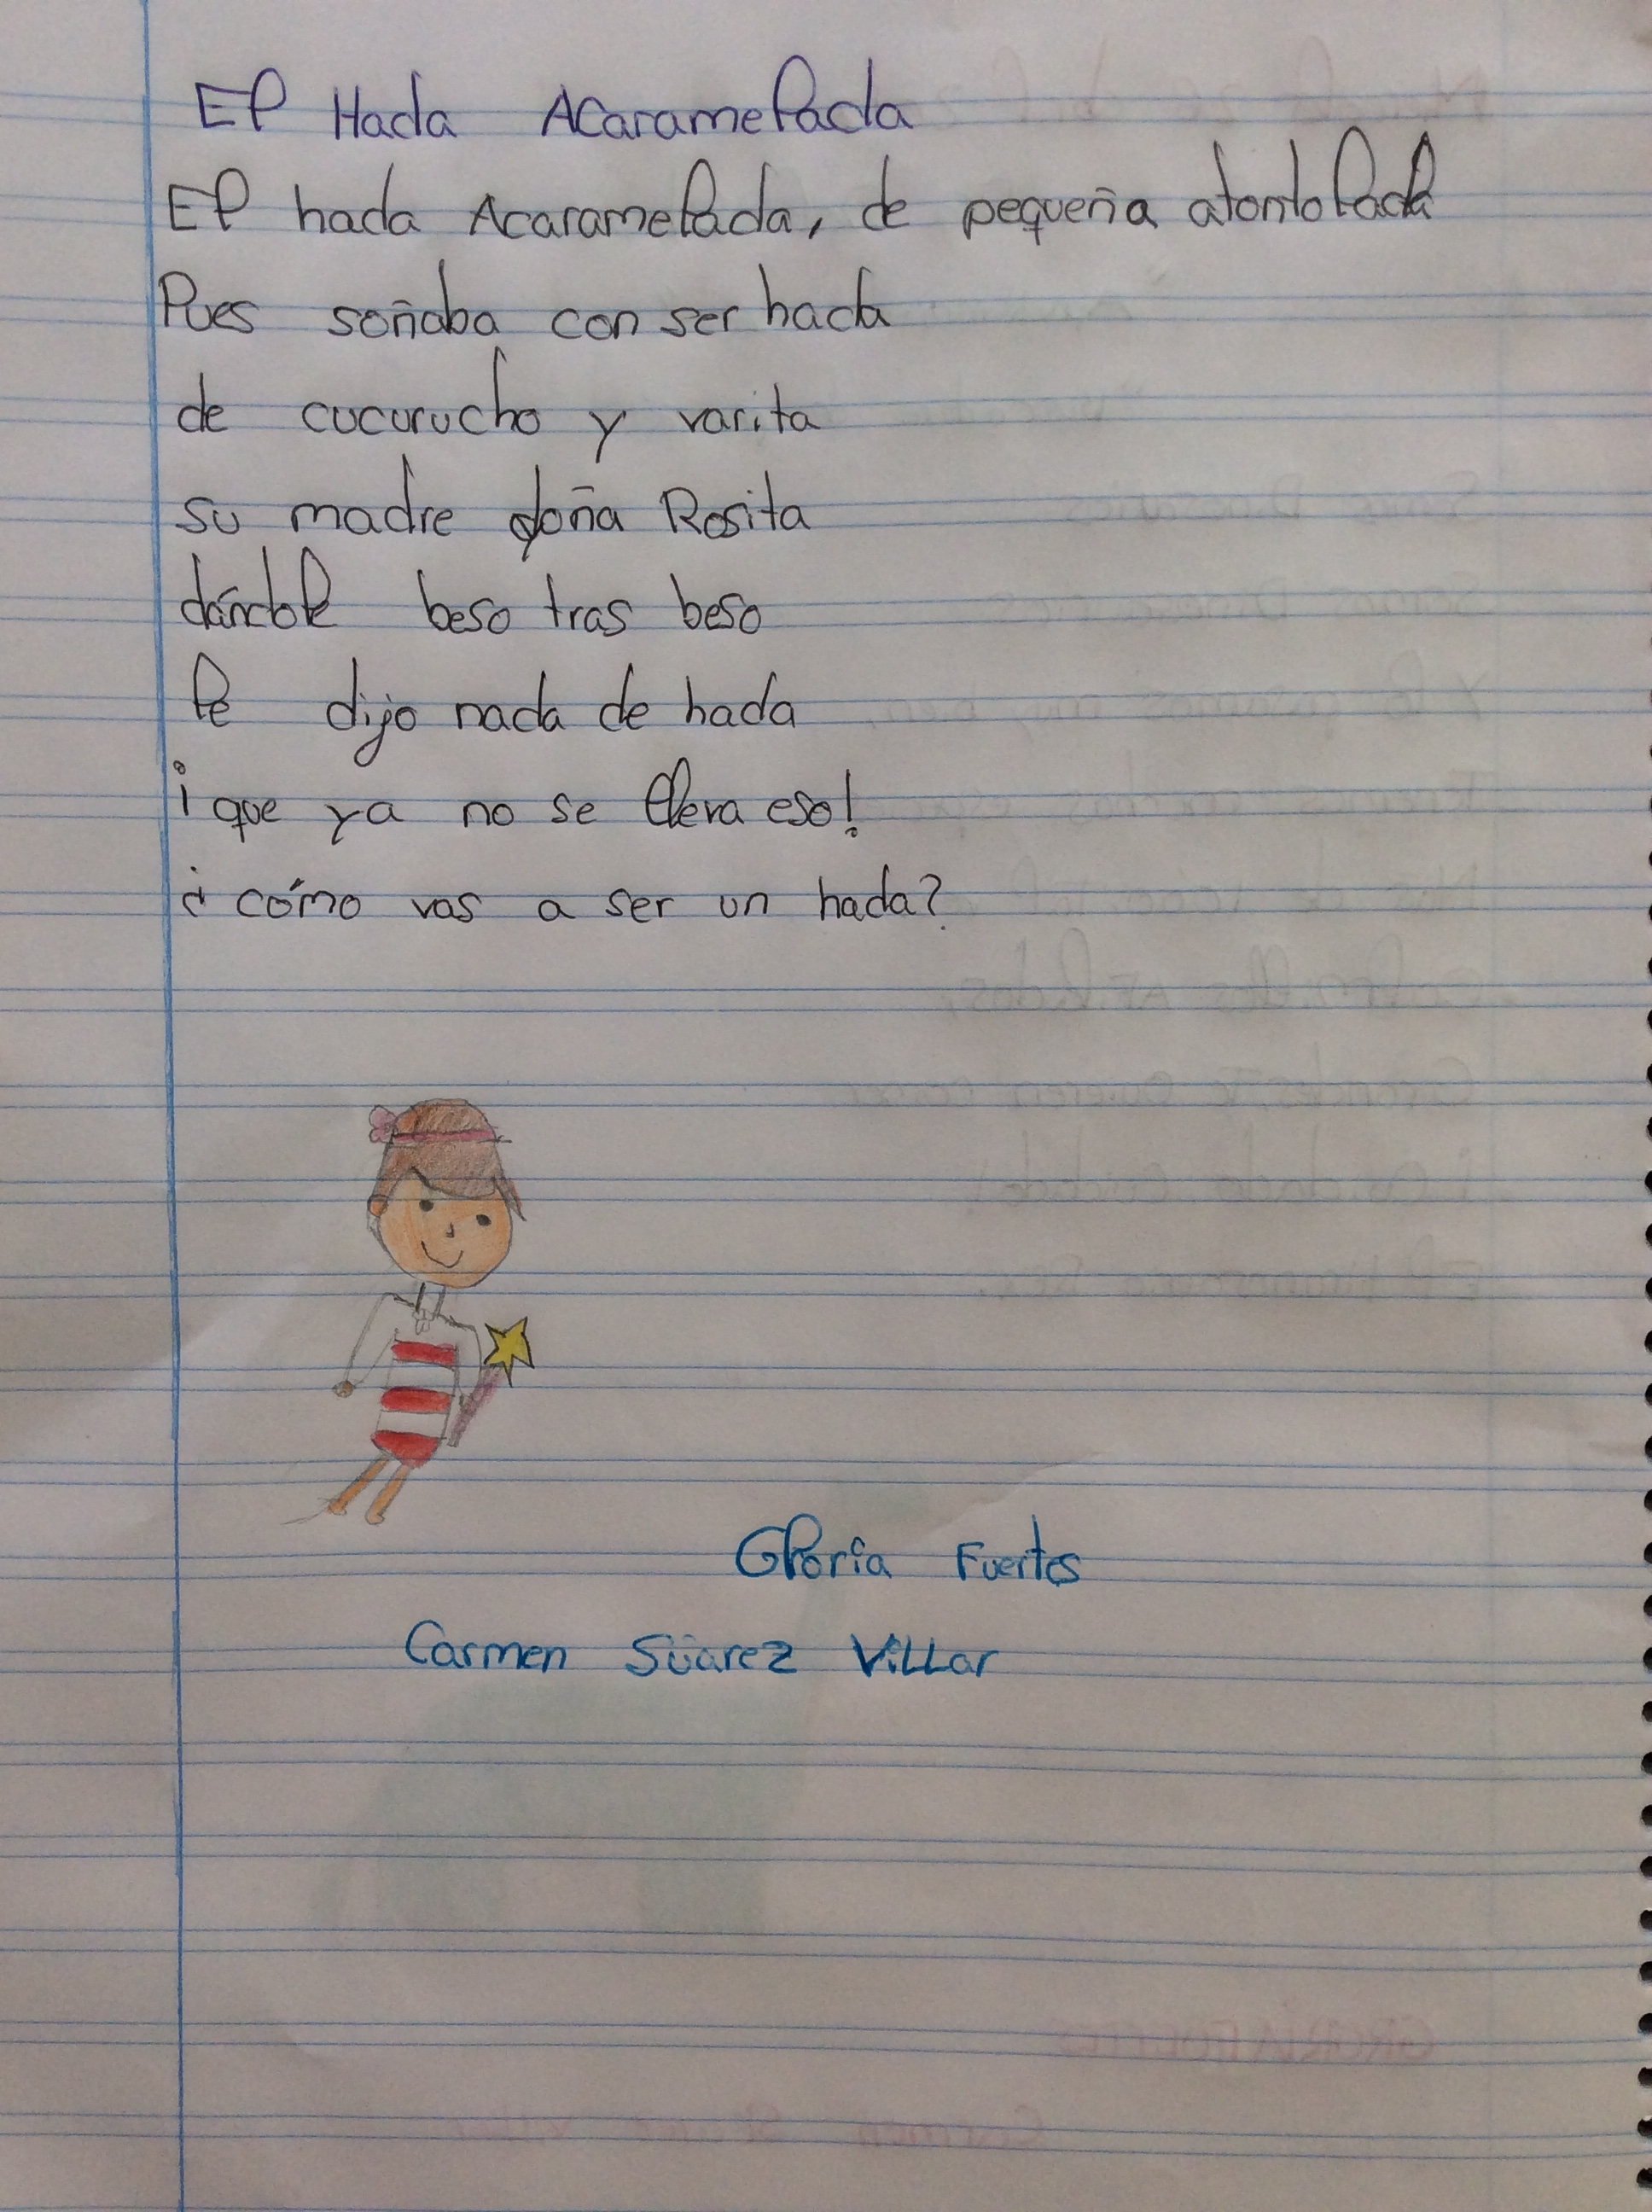 El Hada Acaramelada
El hada Acaramelada, de pequeña atontolada
Pues soñaba con ser hada
de cucurucho y varita
su madre doña Rosita
dándole beso tras beso
le dijo nada de hada
¡que ya no se lleva eso!
¿cómo vas a ser un hada?
Gloria Fuertes
Carmen Súarez Villar